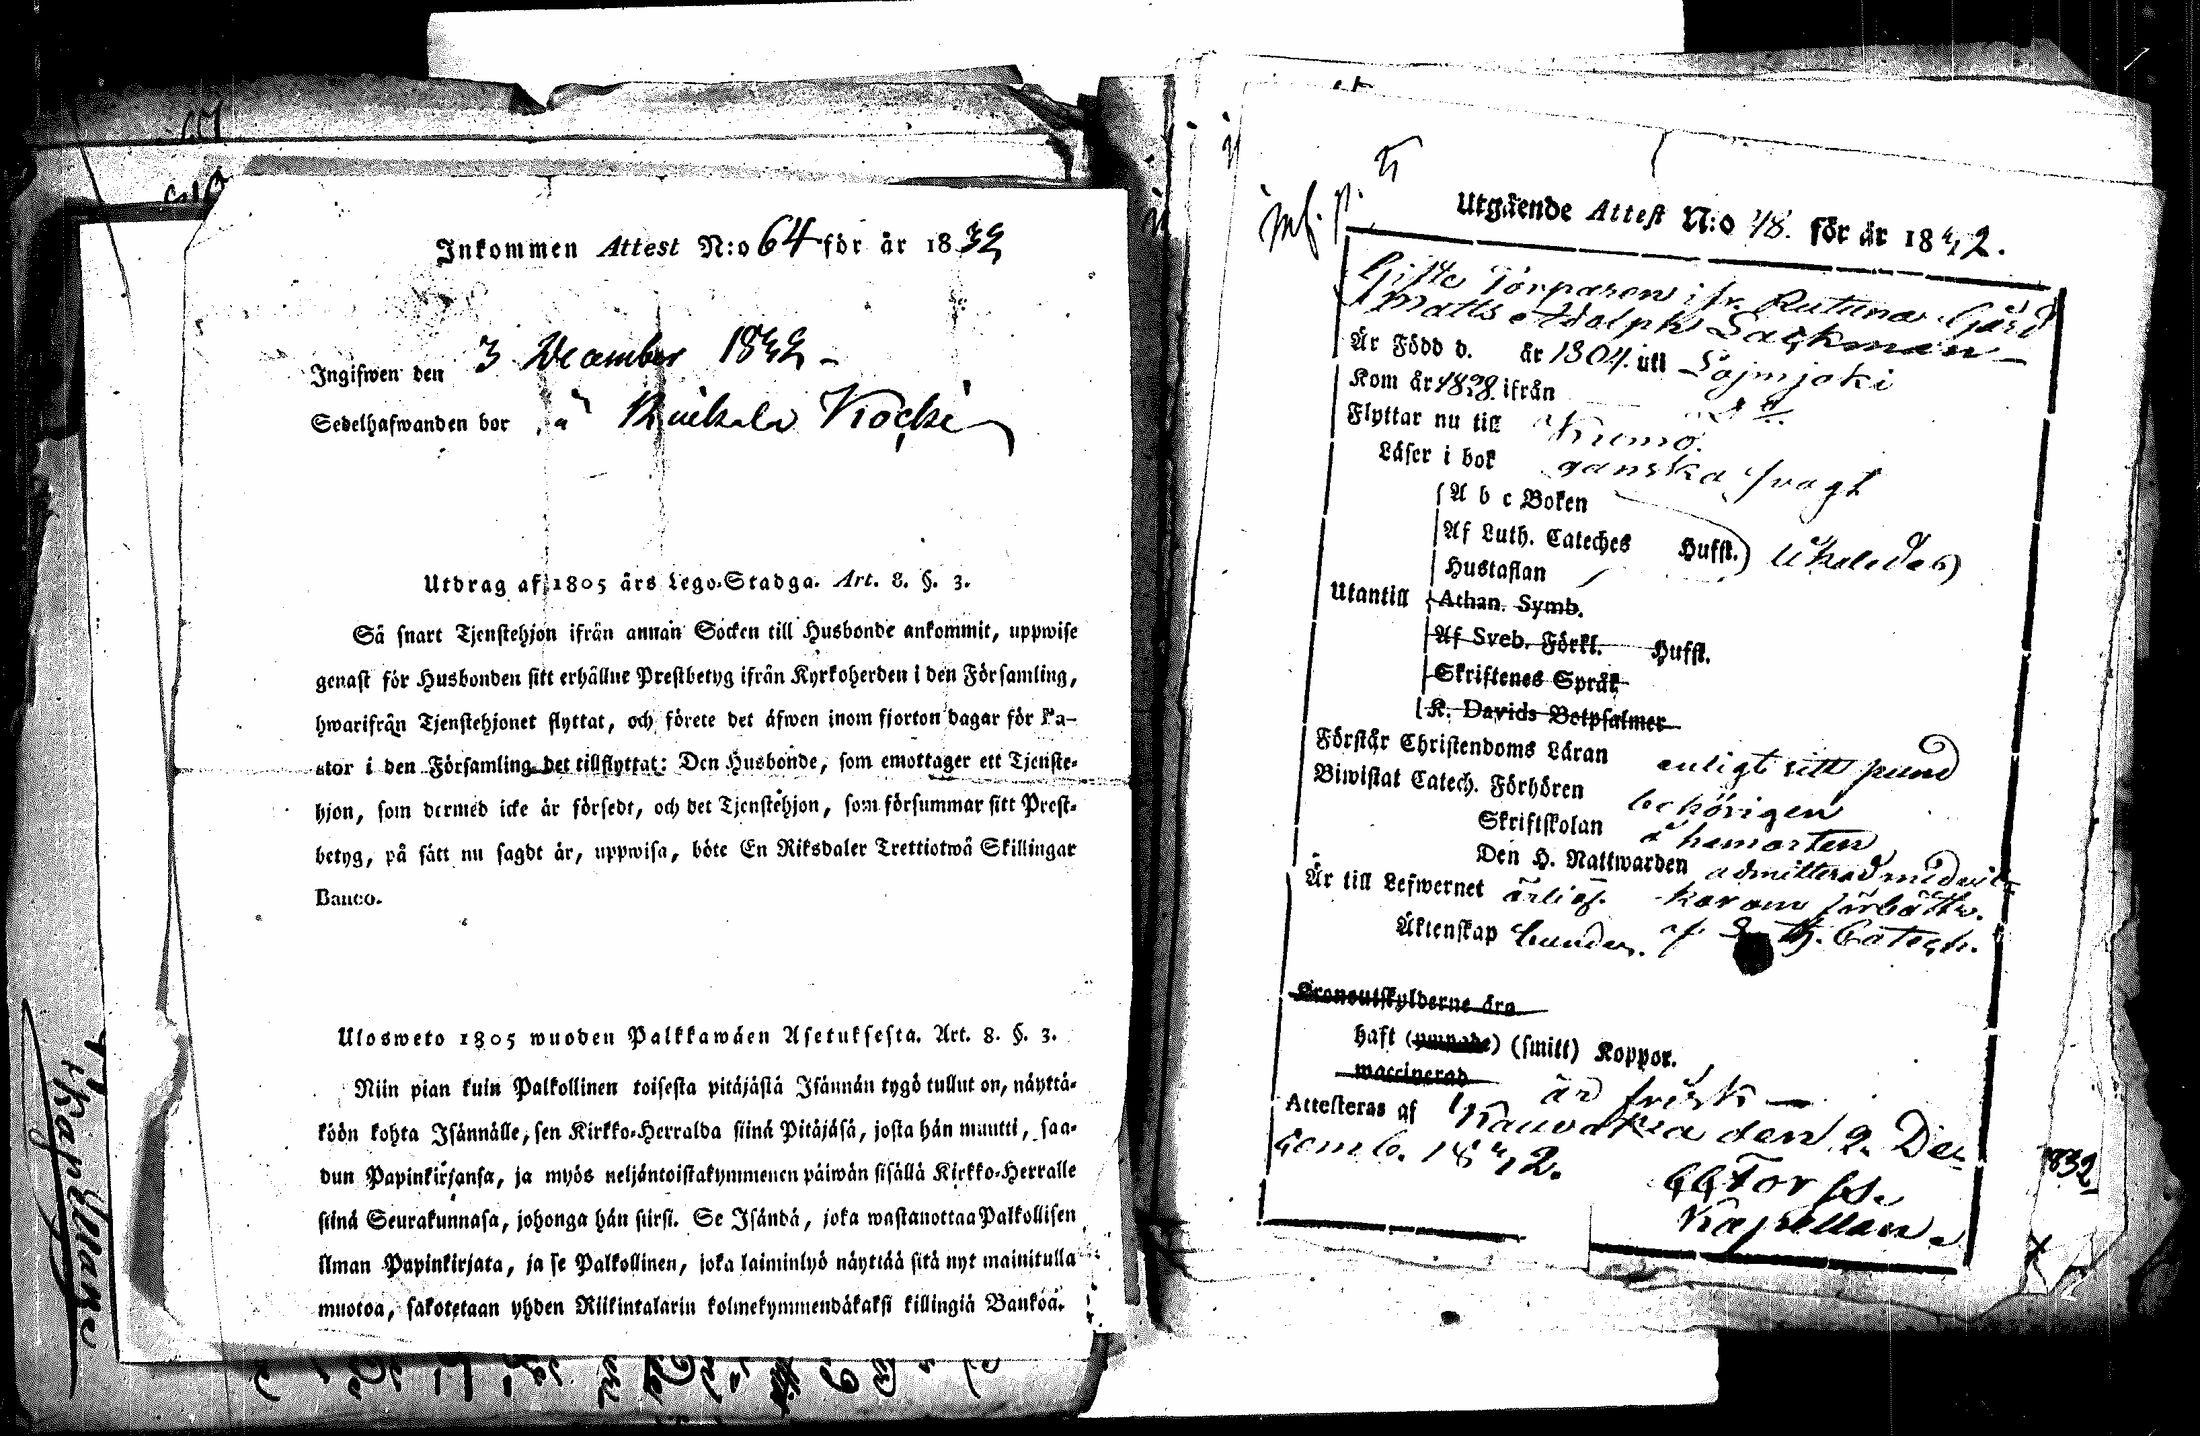 Inkommen Attest N:o 64 för år 1832
Ingifwen den 3 December 1832 –
Sedelhafwanden bor å
Utdrag af 1805 års Lego-Stadga. Art. 8. §. 3.
Så snart Tjenstehjon ifrån annan Socken till Husbonde ankommit, uppwise
genast för Husbonden sitt erhållne Prestbetyg ifrån Kyrkoherden i den Församling,
hwarifrån Tjenstehjonet flyttat, och förete det äfwen inom fjorton dagar för Pa-
stor i den Församling det tillflyttat: Den Husbonde, som emottager ett Tjenste-
hjon, som dermed icke är försedt, och det Tjenstehjon, som försummar sitt Prest-
betyg, på sätt nu sagdt är, uppwisa, böte En Riksdaler Trettiotwå Skillingar
Banco.
Ulosweto 1805 wuoden Palkkawäen Asetuksesta. Art. 8. §. 3.
Niin pian kuin Palkollinen toisesta pitäjästä Isännän tygö tullut on, näyttä-
köön kohta Isännälle, sen Kirkko-Herralda siinä Pitäjäsä, josta hän muutti, saa-
dun Papinkirjansa, ja myös neljäntoistakymmenen päiwän sisällä Kirkko-Herralle
siinä Seurakunnasa, johonga hän siirsi. Se Isändä, joka wastanottaa Palkollisen
ilman Papinkirjata, ja se Palkollinen, joka laiminlyö näyttää sitä nyt mainitulla
muotoa, sakotetaan yhden Riikintalarin kolmekymmendäkaksi killingiä Bankoa.
Utgående Attest N:o 48. för år 1832.
Gifte Torparen ifr. Ruttuna Gård
Matts Adolph Lackman –
Är Född d. år 1804. uti Lojmjoki
Kom år 1828 ifrån
Flyttar nu till Kumo.
Läser i bok ganska svagt
A b c Boken
Af Luth. Cateches Hufst. likaledes
Hustaflan
Utantill Athan. Symb.
Af Sveb. Förkl. Hufst.
Skriftenes Språk
K. Davids Botpsalmer
Förstår Christendoms Läran enligt sitt pund
Biwistat Catech. Förhören behörigen
Skriftskolan å hemorten
Den H. Nattwarden admitterad med wil-
Är till Lefwernet ärlig. kor om förbättr.
Äktenskap bunden. af Catech.
Kronoutskylderne äro
haft (ympade) (smitt) Koppor.
waccinerad är frisk –
Attesteras af Kauvatsa den 2. De-
cemb. 1832.
Kapellan.
832
Kapellan